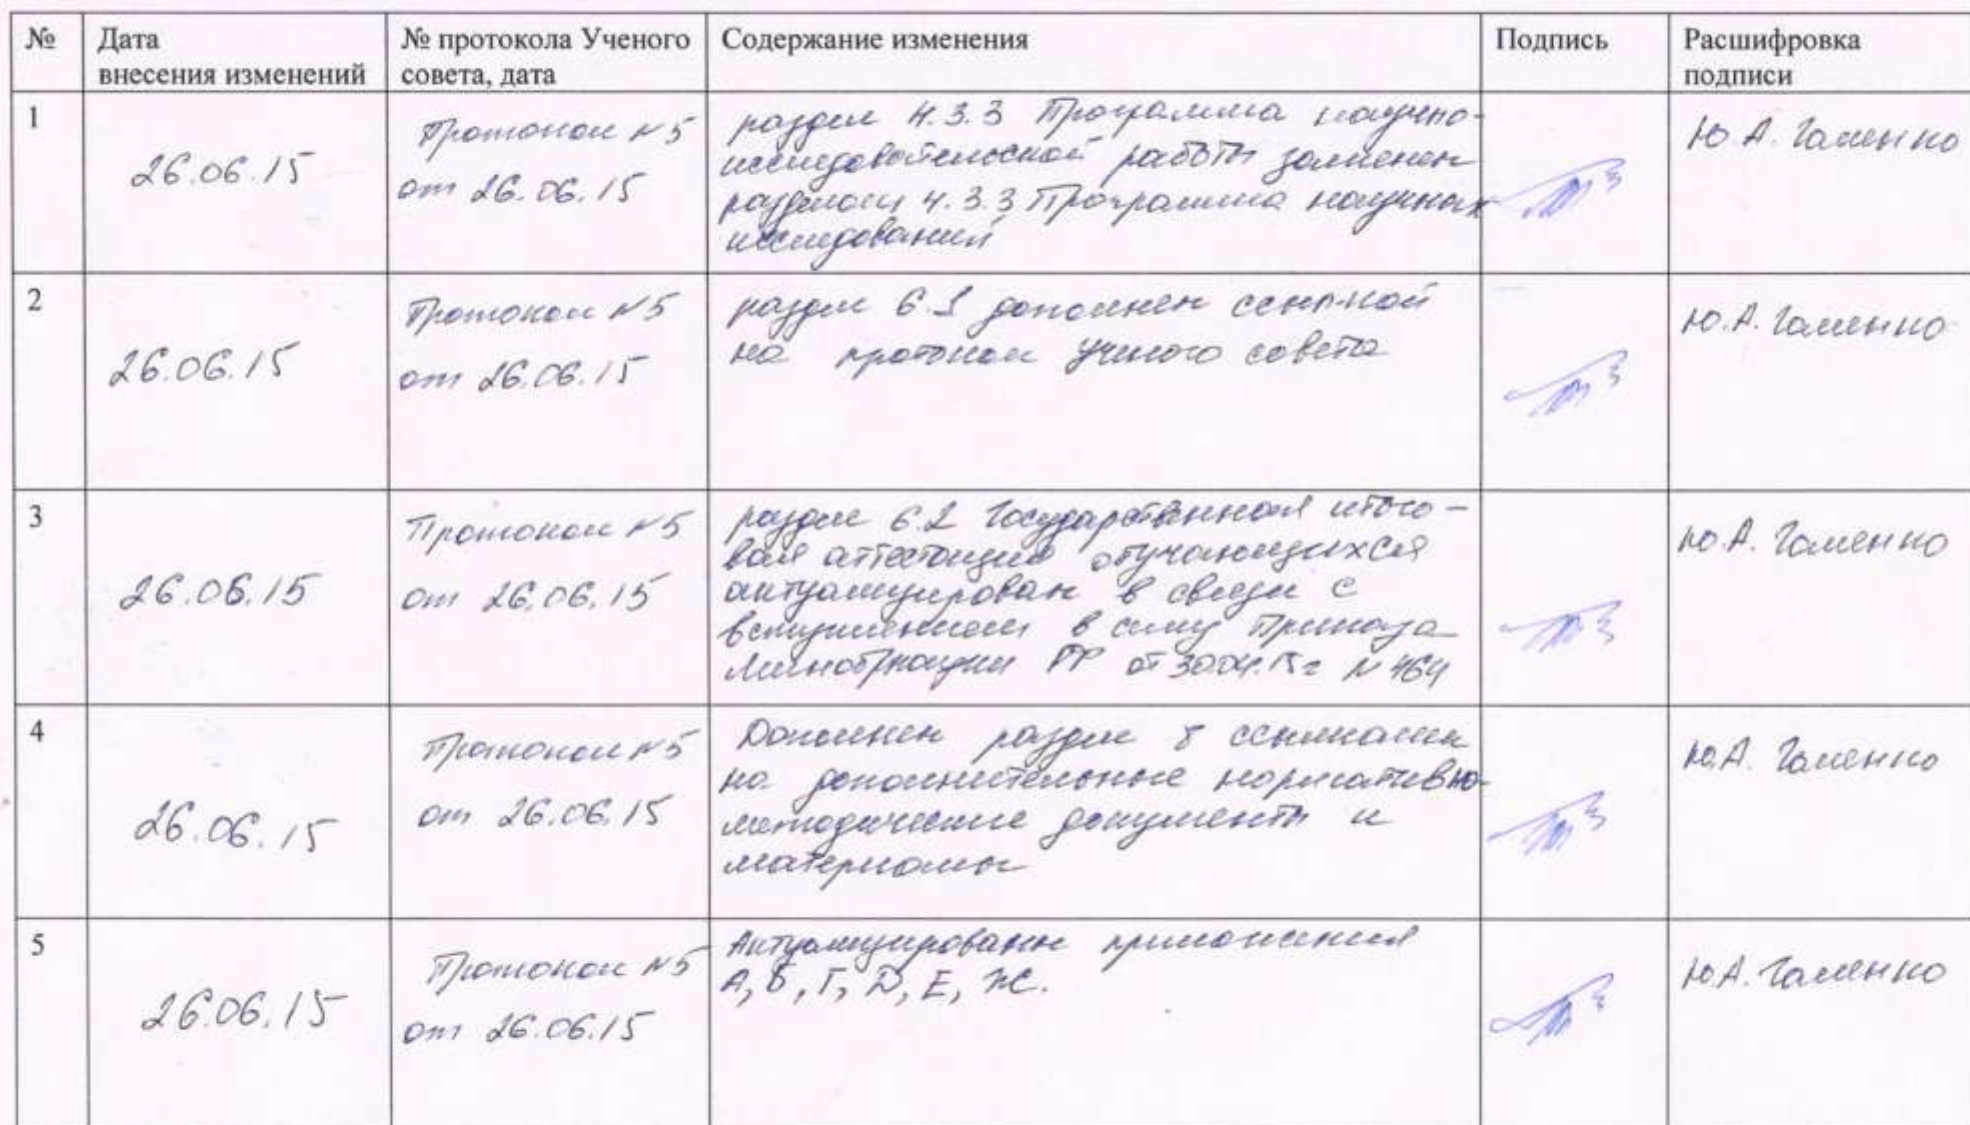 №
Дата
внесения изменений
№ протокола Ученого
совета, дата
Содержание изменения
Подпись
Расшифровка
подписи
1
26.06.15
Протокол №5
от 26.06.15
раздел 4.3.3 Программа научно-
исследовательской работы заменен
разделом 4.3.3 Программа научных
исследований
Ю.А. Гаменко
2
26.06.15
Протокол №5
от 26.06.15
раздел 6.1 дополнен ссылкой
на протокол Ученого совета
Ю.А. Гаменко
3
26.06.15
Протокол №5
от 26.06.15
раздел 6.2 Государственная итого-
вая аттестация обучающихся
актуализирован в связи с
вступлением в силу Приказа
Минобрнауки РФ от 30.04.15г №464
Ю.А. Гаменко
4
26.06.15
Протокол №5
от 26.06.15
Дополнен раздел 8 ссылками
на дополнительные нормативно-
методические документы и
материалы
Ю.А. Гаменко
5
26.06.15
Протокол №5
от 26.06.15
Актуализированы приложения
А, Б, Г, Д, Е, Ж.
Ю.А. Гаменко